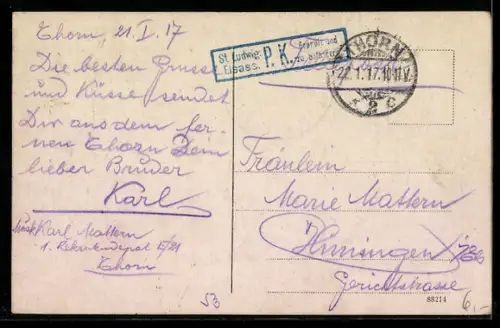 Thorn, 21/I. 17
Die besten Grüsse
und Küsse sendet
Dir aus dem fer-
nen Thorn Dein
lieber Bruder
Karl
Musk. Karl Mattern
1. Rekrutendepot E/21
Thorn
St. Ludwig
Elsass. P. K. Geprüft und
zu befördern
THORN
22.1.17.10-11V.
* 2 c
Fräulein
Marie Mattern
Hüningen i/Els
Gerichtstrasse
88214
53
6,-